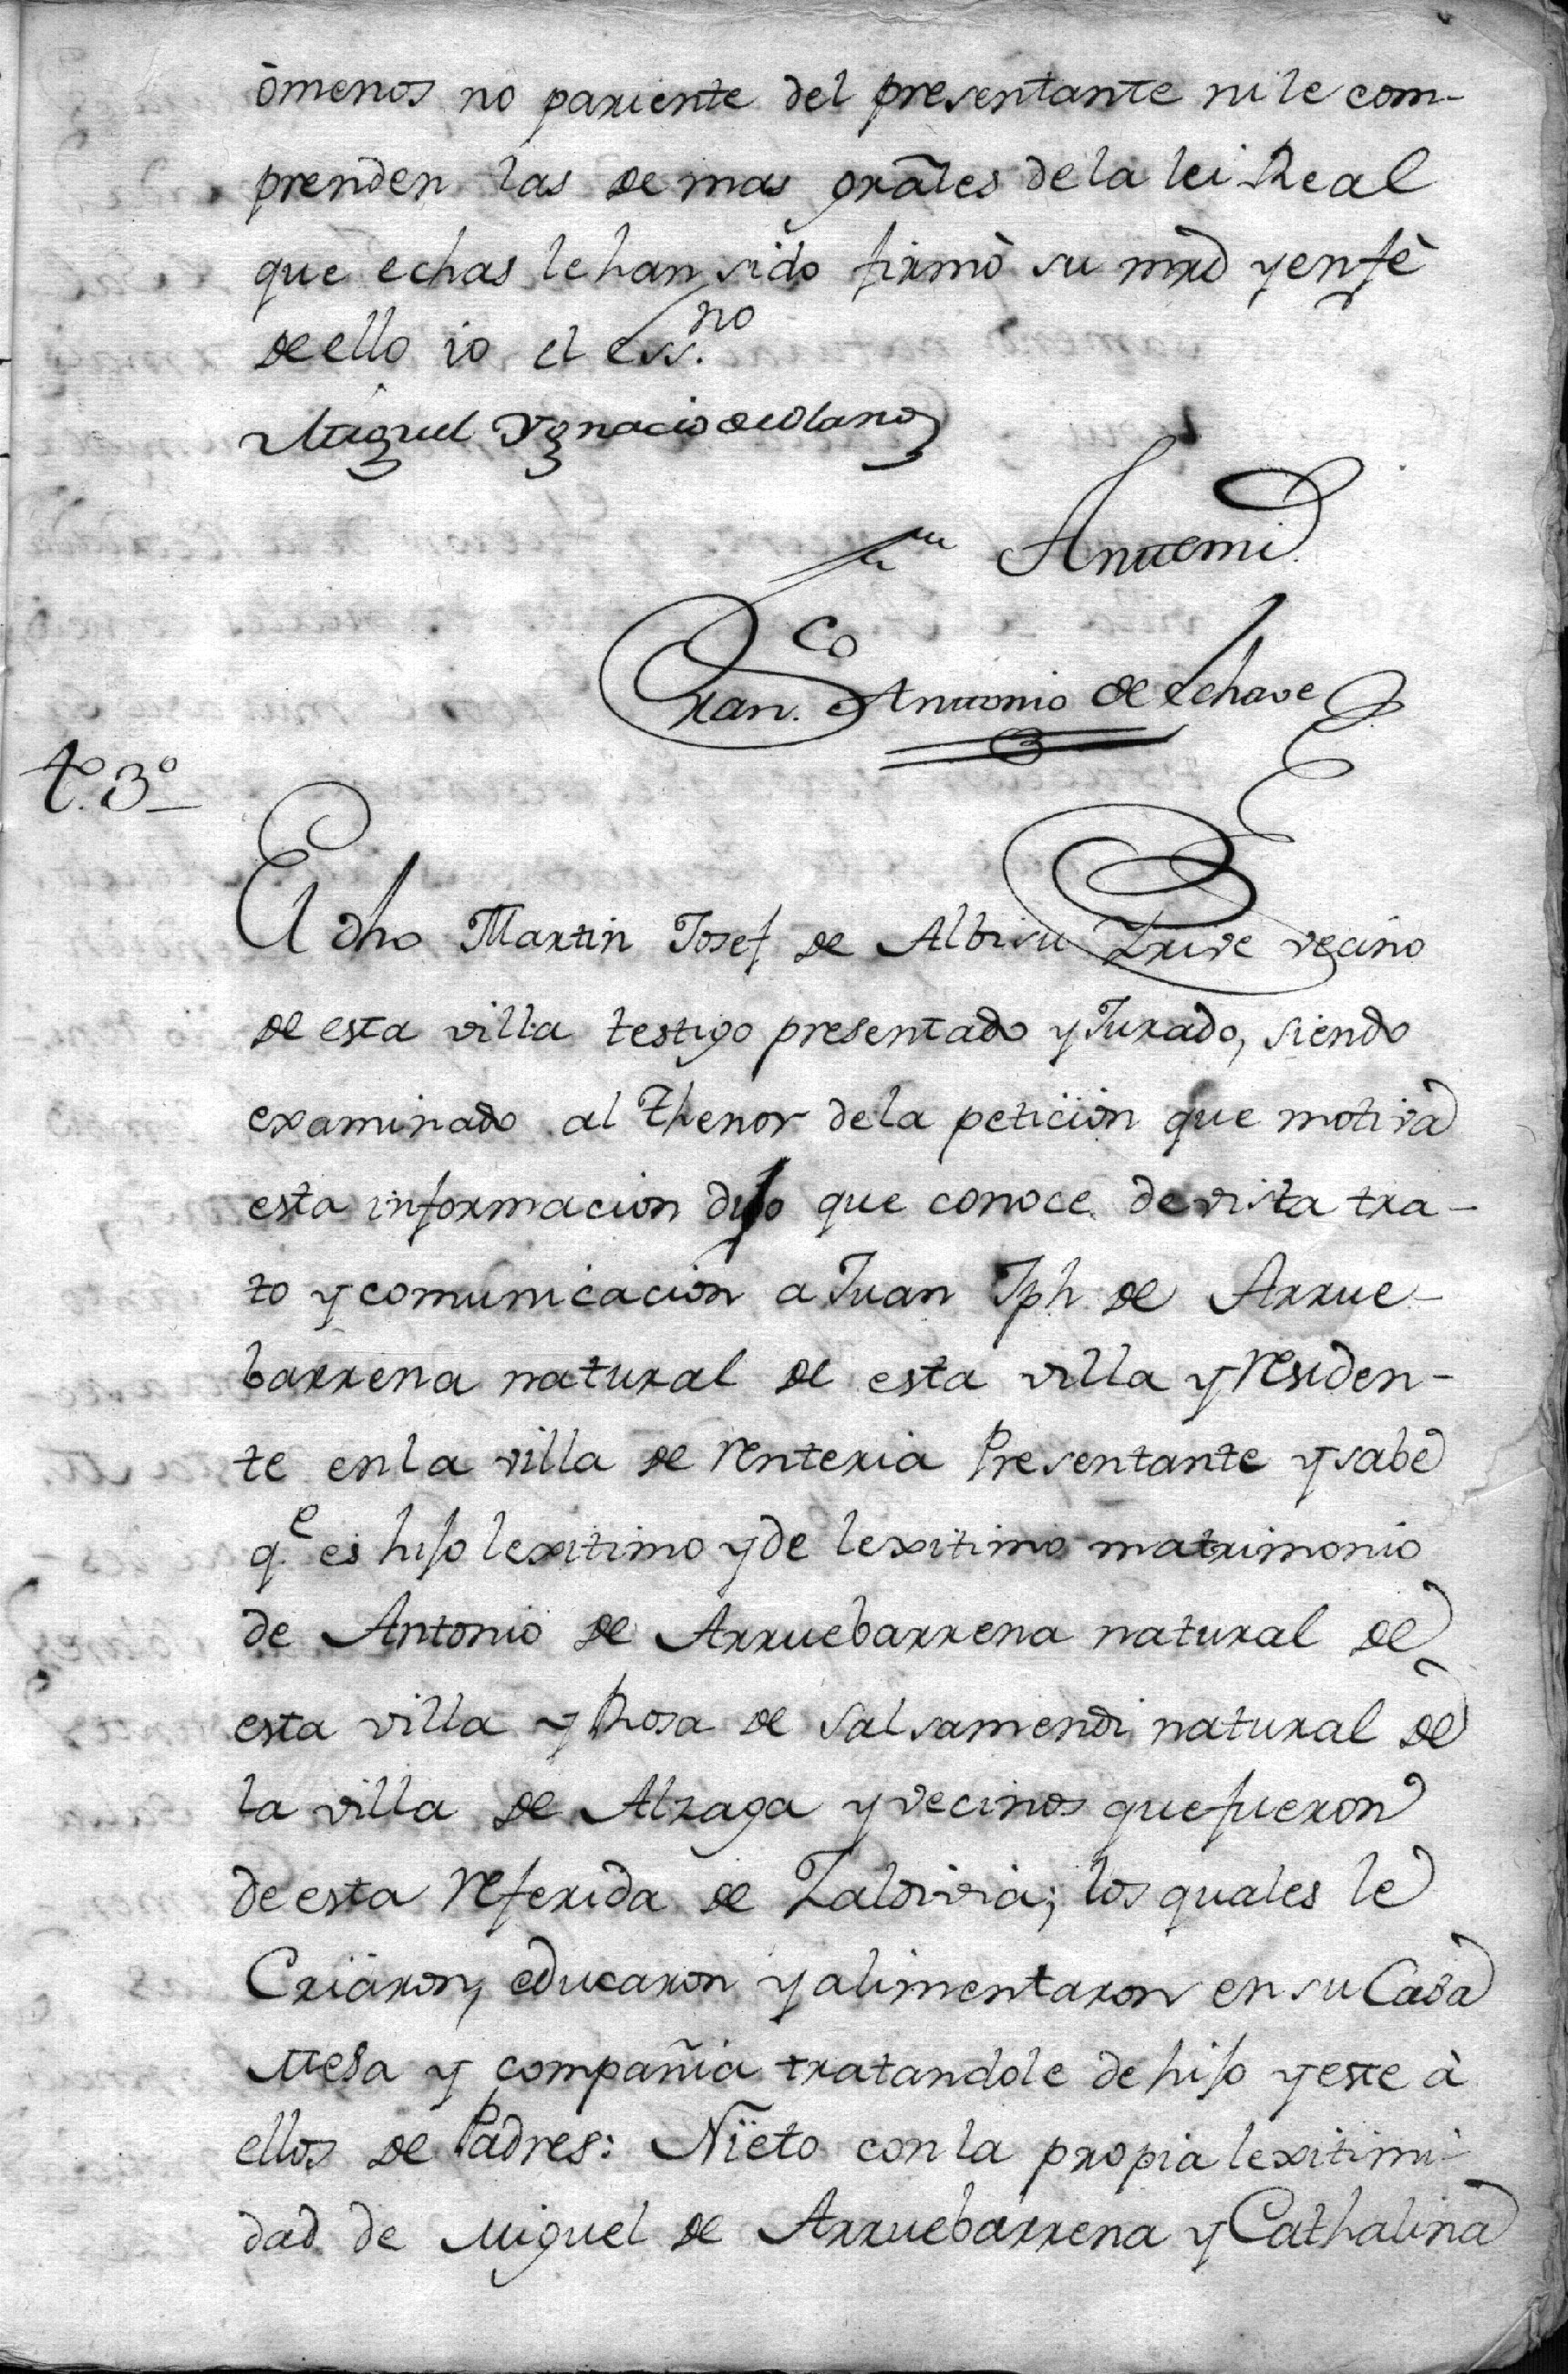 òmenos no pariente del presentante ni le com-
prenden las de mas grāles de la lei Real
que echas le han sido firmò su mrd y en fè
de ello io el ess.no
Miguel Ygnacio de Olano
Ante mi
Fran.co Antonio de Echave
t.o 3.o
El dho Martin Josef de Albisu Zrive vecino
de esta villa testigo presentado y Jurado, siendo
examinado al thenor de la peticiòn que motiva
esta informacion dijo que conoce de vista tra-
to y comunicacion a Juan Jph de Arrue-
barrena natural de esta villa y residen-
te en la villa de renteria Presentante y sabe
q.e es hijo lexitimo y de lexitimo matrimonio
de Antonio de Arruebarrena natural de
esta villa y Rosa de Salsamendi natural de
la villa de Alzaga y vecinos que fueron
de esta referida de Zaldivia; los quales le
Criaron, educaron y alimentaron en su Casa
Mesa y compañia tratandole de hijo y este à
ellos de Padres: Nieto con la propia lexitimi-
dad de Miguel de Arruebarrena y Cathalina